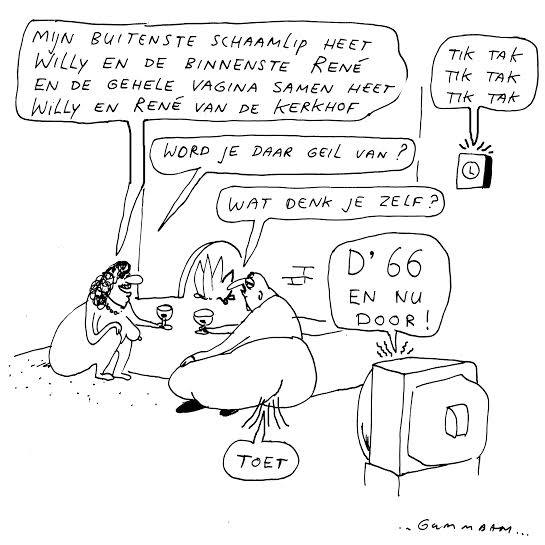 MIJN BUITENSTE SCHAAMLIP HEET
WILLY EN DE BINNENSTE RENÉ
EN DE GEHELE VAGINA SAMEN HEET
WILLY EN RENÉ VAN DE KERKHOF
TIK TAK
TIK TAK
TIK TAK
WORD JE DAAR GEIL VAN?
WAT DENK JE ZELF?
D'66
EN NU
DOOR!
TOET
..GUMMBAH...